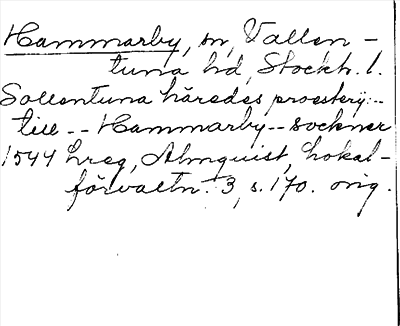 Hammarby, sn, Vallen-
tuna hd, Stockh. l.
Sollentuna häredes proesterij --
till -- Hammarby -- sockner
1544 hreg, Almquist, Lokal-
förvaltn. 3, s. 170. orig.